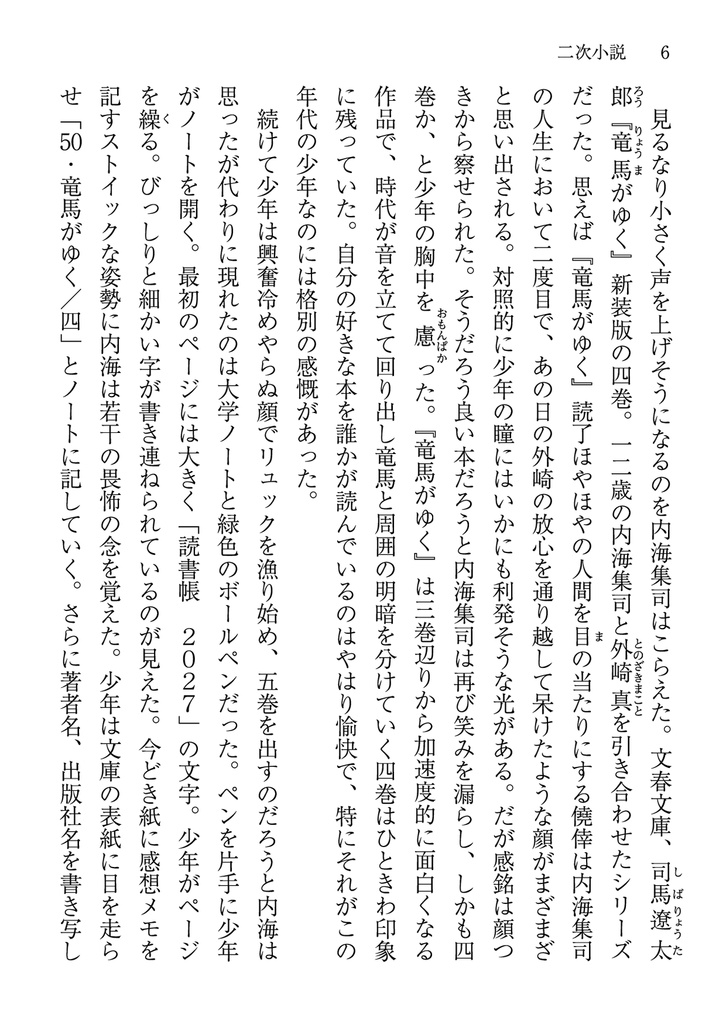 二次小説 6
見るなり小さく声を上げそうになるのを内海集司はこらえた。文春文庫、司馬遼太
郎『竜馬がゆく』新装版の四巻。一二歳の内海集司と外崎真を引き合わせたシリーズ
だった。思えば『竜馬がゆく』読了ほやほやの人間を目の当たりにする僥倖は内海集司
の人生において二度目で、あの日の外崎の放心を通り越して呆けたような顔がまざまざ
と思い出される。対照的に少年の瞳にはいかにも利発そうな光がある。だが感銘は顔つ
きから察せられた。そうだろう良い本だろうと内海集司は再び笑みを漏らし、しかも四
巻か、と少年の胸中を慮った。『竜馬がゆく』は三巻辺りから加速度的に面白くなる
作品で、時代が音を立てて回り出し竜馬と周囲の明暗を分けていく四巻はひときわ印象
に残っていた。自分の好きな本を誰かが読んでいるのはやはり愉快で、特にそれがこの
年代の少年なのには格別の感慨があった。
続けて少年は興奮冷めやらぬ顔でリュックを漁り始め、五巻を出すのだろうと内海は
思ったが代わりに現れたのは大学ノートと緑色のボールペンだった。ペンを片手に少年
がノートを開く。最初のページには大きく「読書帳 2027」の文字。少年がページ
を繰る。びっしりと細かい字が書き連ねられているのが見えた。今どき紙に感想メモを
記すストイックな姿勢に内海は若干の畏怖の念を覚えた。少年は文庫の表紙に目を走ら
せ「50・竜馬がゆく/四」とノートに記していく。さらに著者名、出版社名を書き写し